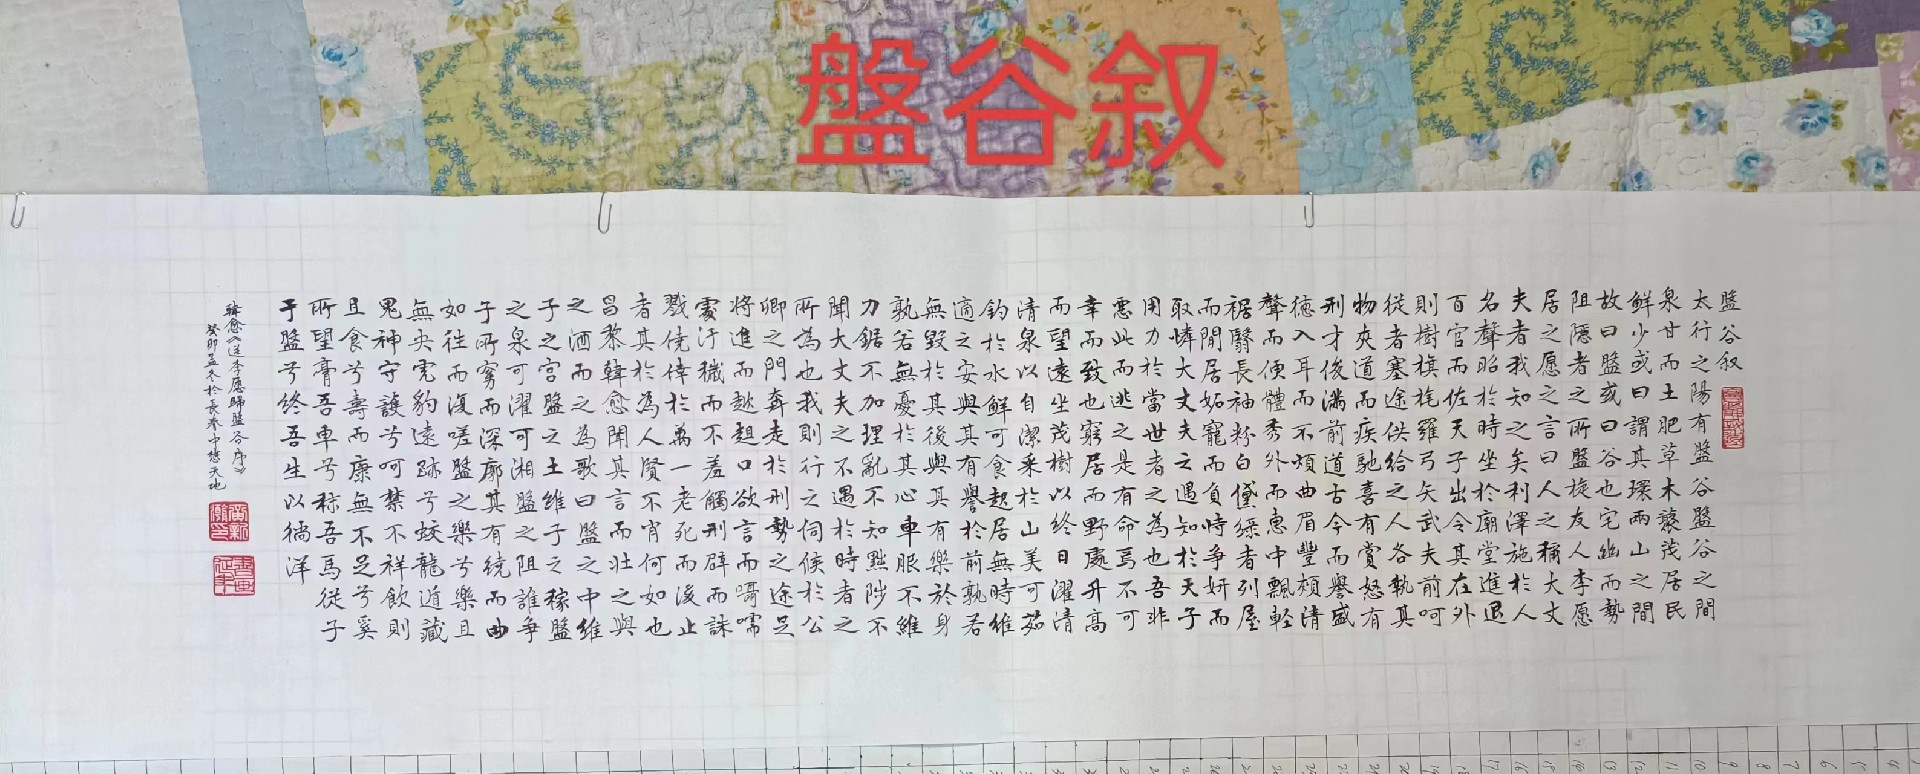 盤谷叙
盤谷叙
太行之陽有盤谷盤谷之間
泉甘而土肥草木藂茂居民
鮮少或曰謂其環兩山之間
故曰盤或曰谷也宅幽而勢
阻隱者之所盤旋友人李愿
居之愿之言曰人之稱大丈
夫者我知之矣利澤施於人
名聲昭於時坐於廟堂進退
百官而佐天子出令其在外
則樹旗旄羅弓矢武夫前呵
從者塞途供給之人各執其
物夾道而疾馳喜有賞怒有
刑才俊滿前道古今而譽盛
德入耳而不煩曲眉豐頰清
聲而便體秀外而惠中飄輕
裾翳長袖粉白黛綠者列屋
而閒居妬寵而負恃爭妍而
取憐大丈夫之遇知於天子
用力於當世者之為也吾非
惡此而逃之是有命焉不可
幸而致也窮居而野處升高
而望遠坐茂樹以終日濯清
清泉以自潔采於山美可茹
釣於水鮮可食起居無時維
適之安與其有譽於前孰若
無毀於其後與其有樂於身
孰若無憂於其心車服不維
刀鋸不加理亂不知黜陟不
聞大丈夫之不遇於時者之
所為也我則行之伺候於公
卿之門奔走於刑勢之途足
將進而趑趄口欲言而囁嚅
處汙穢而不羞觸刑辟而誅
戮僥倖於萬一老死而後止
者其於為人賢不宵何如也
昌黎韓愈聞其言而壯之與
之酒而之為歌曰盤之中維
子之宮盤之土維子之稼盤
之泉可濯可湘盤之阻誰爭
子所窮而深廓其有繞而曲
如往而復嗟盤之樂兮樂且
無央虎豹遠跡兮蛟龍遁藏
鬼神守護兮呵禁不祥飲則
且食兮壽而康無不足兮奚
所望膏吾車兮秣吾馬從子
于盤兮終吾生以徜洋
韓愈《送李愿歸盤谷序》
癸卯孟冬於長春中慧天地